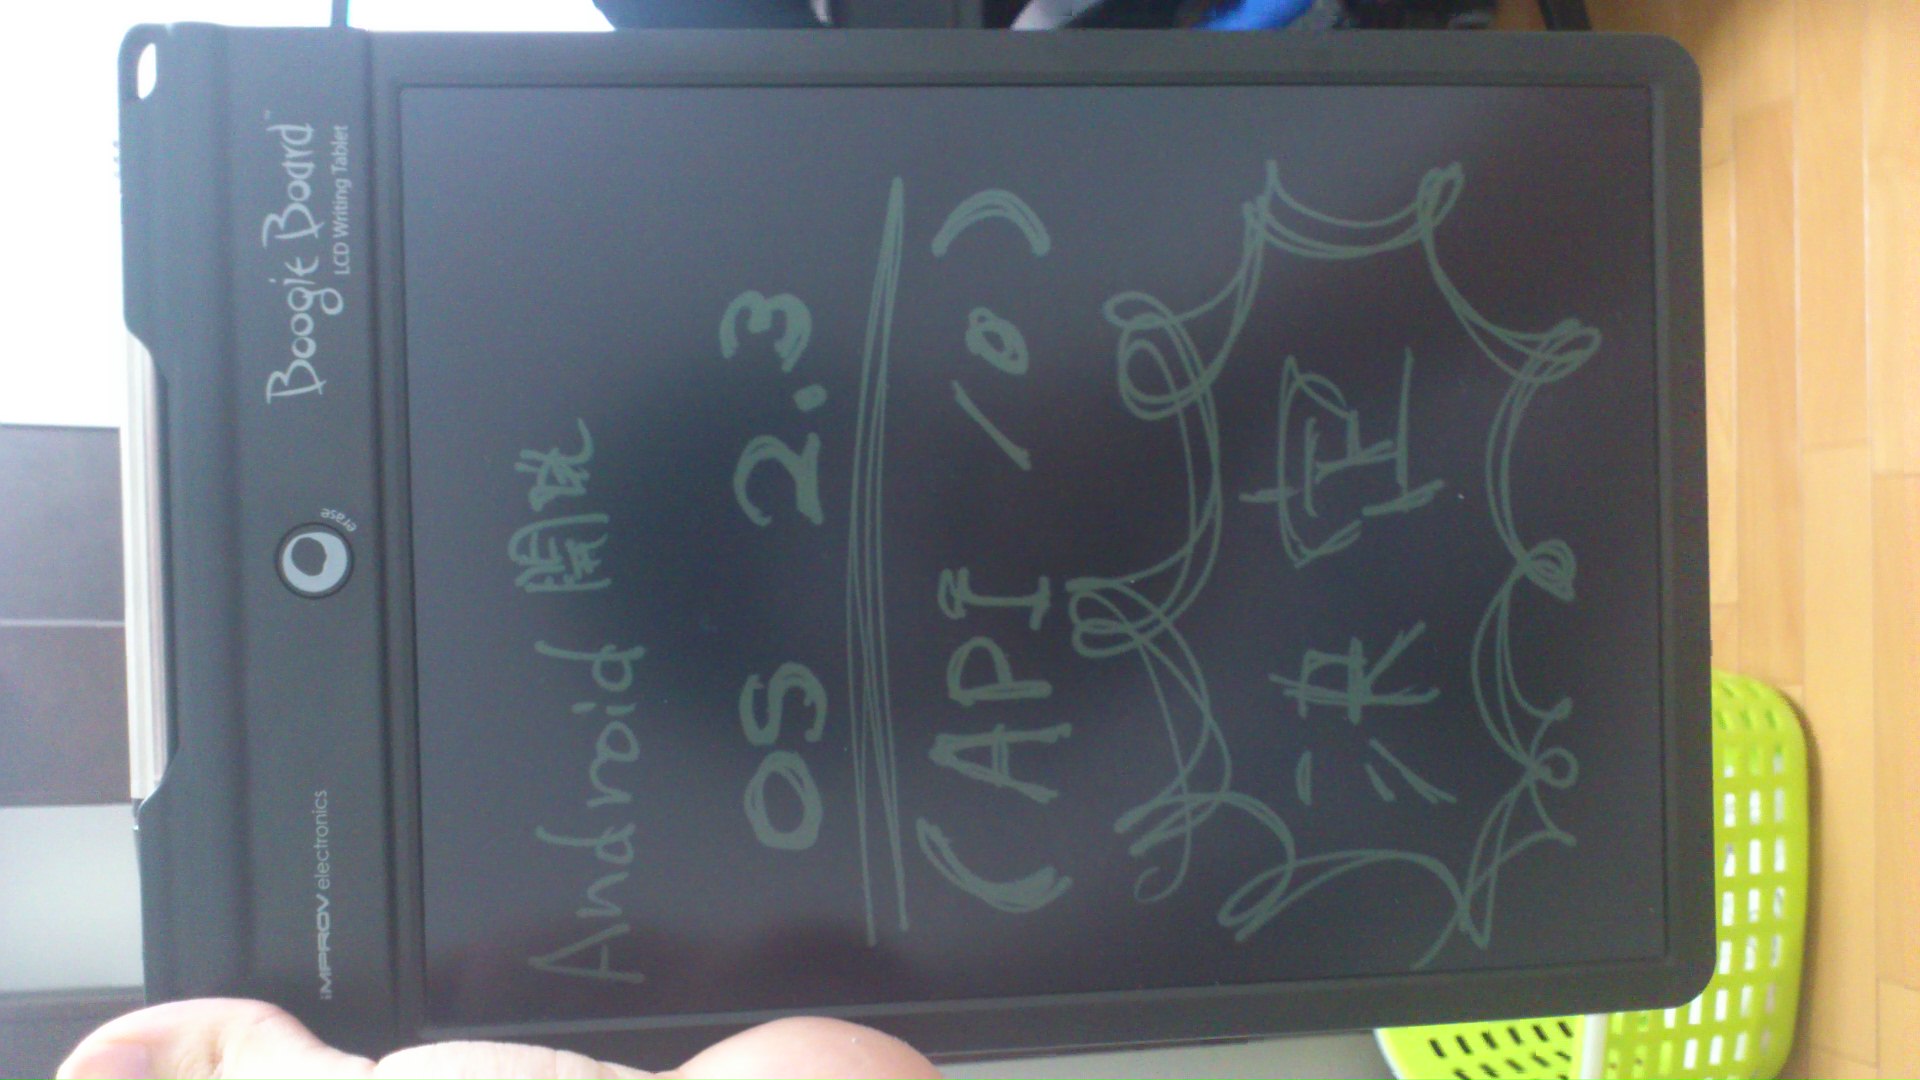 iMPROV electronics
erase
Boogie Board™
LCD Writing Tablet
Android 開
OS 2.3
(API 10)
決定